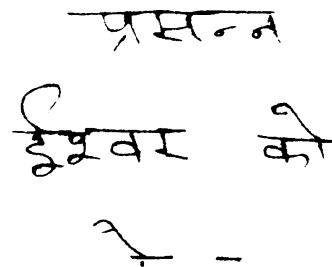 प्रसन्न
ईश्वर को